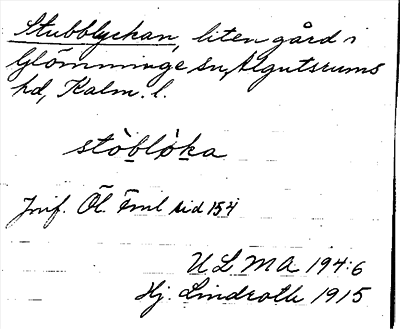 Stubblyckan, liten gård i
Glömminge sn, Algutsrums
hd, Kalm. l.
stòblø̀ka
Jmf. Öl. Fml sid 154
U L M A 194:6
Hj. Lindroth 1915